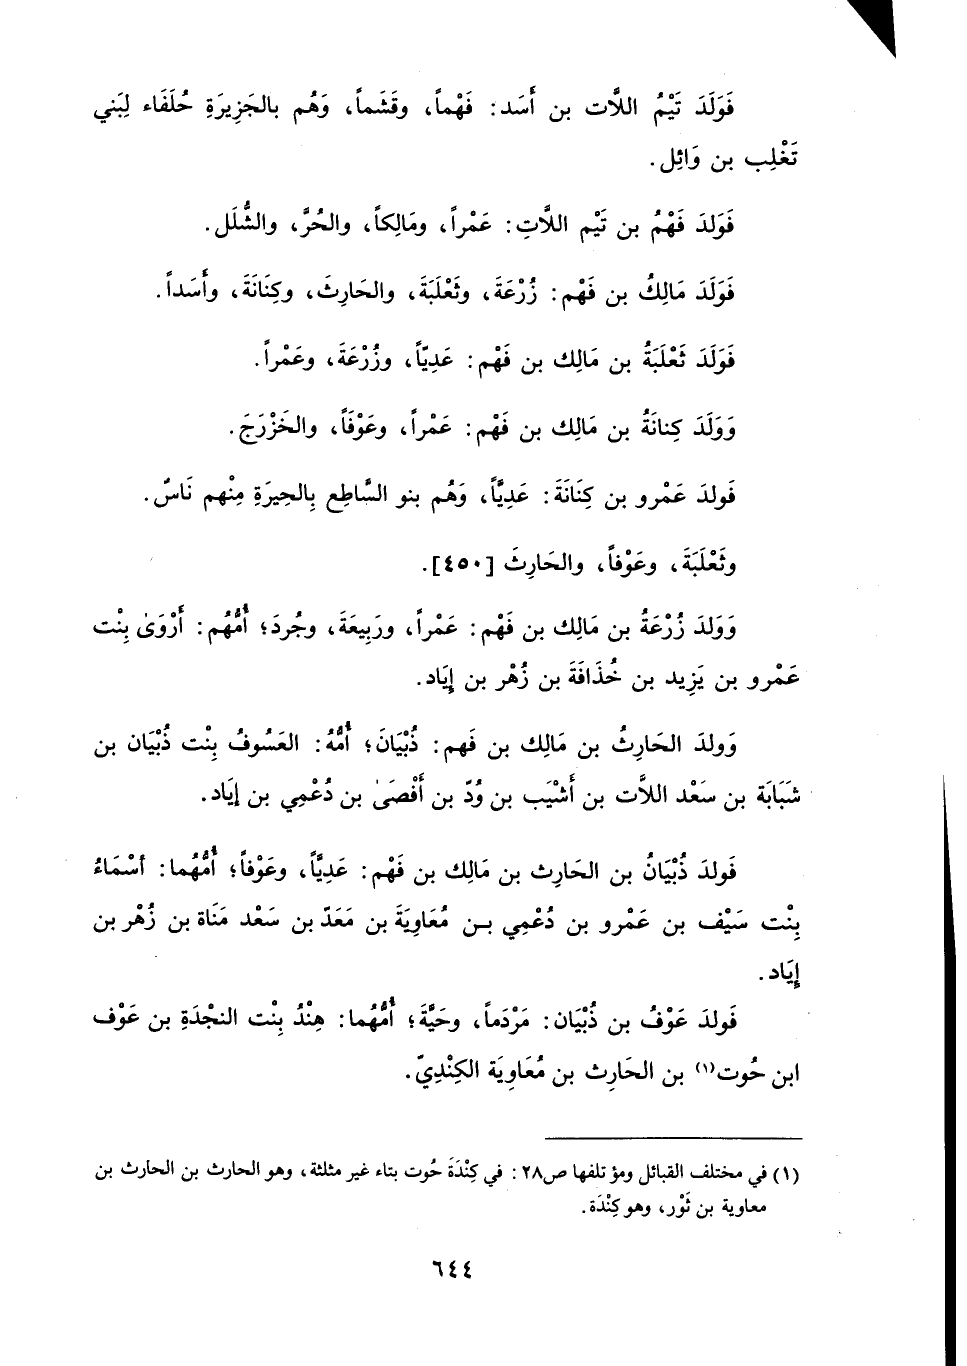 فَوَلَدَ تَيْمُ اللَّات بن أَسَد: فَهْماً، وقَشَماً، وَهُم بالجَزِيرَةِ حُلَفَاء لِبَني
تَغْلِب بن وَائِل.
فَوَلدَ فَهْمُ بن تَيْم اللاَّتِ: عَمْراً، ومَالِكاً، والحُرَّ، والشُّلَل.
فَوَلَدَ مَالِكُ بن فَهْم: زُرْعَةَ، وثَعْلَبَةَ، والحَارِثَ، وكِنَانَةَ، وأَسَداً.
فَوَلَدَ ثَعْلَبَةُ بن مَالِك بن فَهْم: عَدِيّاً، وزُرْعَةَ، وعَمْراً.
وَوَلَدَ كِنانَةُ بن مَالِك بن فَهْم: عَمْراً، وعَوْفَاً، والخَزْرَجَ.
فَولدَ عَمْرو بن كِنَانَةَ: عَدِيَّاً، وَهُم بنو السَّاطِع بِالحِيرَةِ مِنْهم نَاسٌ.
وثَعْلَبَةَ، وعَوْفاً، والحَارِثَ [٤٥٠].
وَوَلدَ زُرْعَةُ بن مَالِك بن فَهْم: عَمْراً، ورَبِيعَةَ، وجُردَ؛ أُمُّهُم: أَرْوَىٰ بِنْت
عَمْرو بن يَزِيد بن خُذَافَةَ بن زُهْر بن إِيَاد.
وَولدَ الحَارِثُ بن مَالِك بن فَهم: ذُبْيَانَ؛ أُمُّهُ: العَسُوفُ بِنْت ذُبْيَان بن
شَبَابَة بن سَعْد اللاَّت بن أَشْيَب بن وُدّ بن أَفْصَىٰ بن دُعْمِي بن إِيَاد.
فَولدَ ذُبْيَانُ بن الحَارِث بن مَالِك بن فَهْم: عَدِيَّاً، وعَوْفاً؛ أُمُّهُما: أسْمَاءُ
بِنْت سَيْف بن عَمْرو بن دُعْمِي بـن مُعَاوِيَةَ بن مَعَدّ بن سَعْد مَنَاة بن زُهْر بن
إِيَاد.
فَولدَ عَوْفُ بن ذُبْيَان: مَرْدَماً، وحَيَّةَ؛ أُمُّهُما: هِنْدُ بِنْت النجْدَةِ بن عَوْف
ابن حُوت(١) بن الحَارِث بن مُعَاوِيَة الكِنْدِيّ.
(١) في مختلف القبائل ومؤتلفها ص٢٨: في كِنْدَةَ حُوت بتاء غير مثلثة، وهو الحارث بن الحارث بن
معاوية بن ثَوْر، وهو كِنْدَة.
٦٤٤